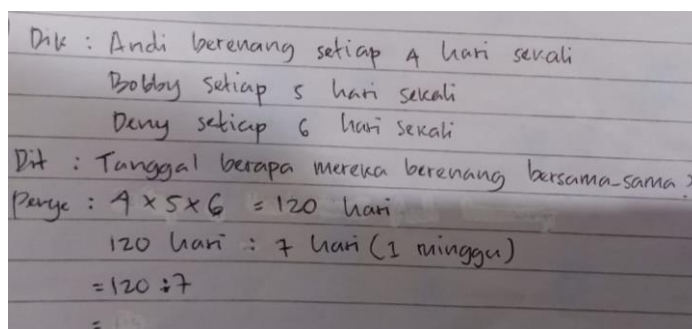 Dik : Andi berenang setiap 4 hari sekali
Bobby setiap 5 hari sekali
Deny setiap 6 hari sekali
Dit : Tanggal berapa mereka berenang bersama-sama?
Penye : 4 x 5 x 6 = 120 hari
120 hari : 7 hari (1 minggu)
= 120 : 7
=